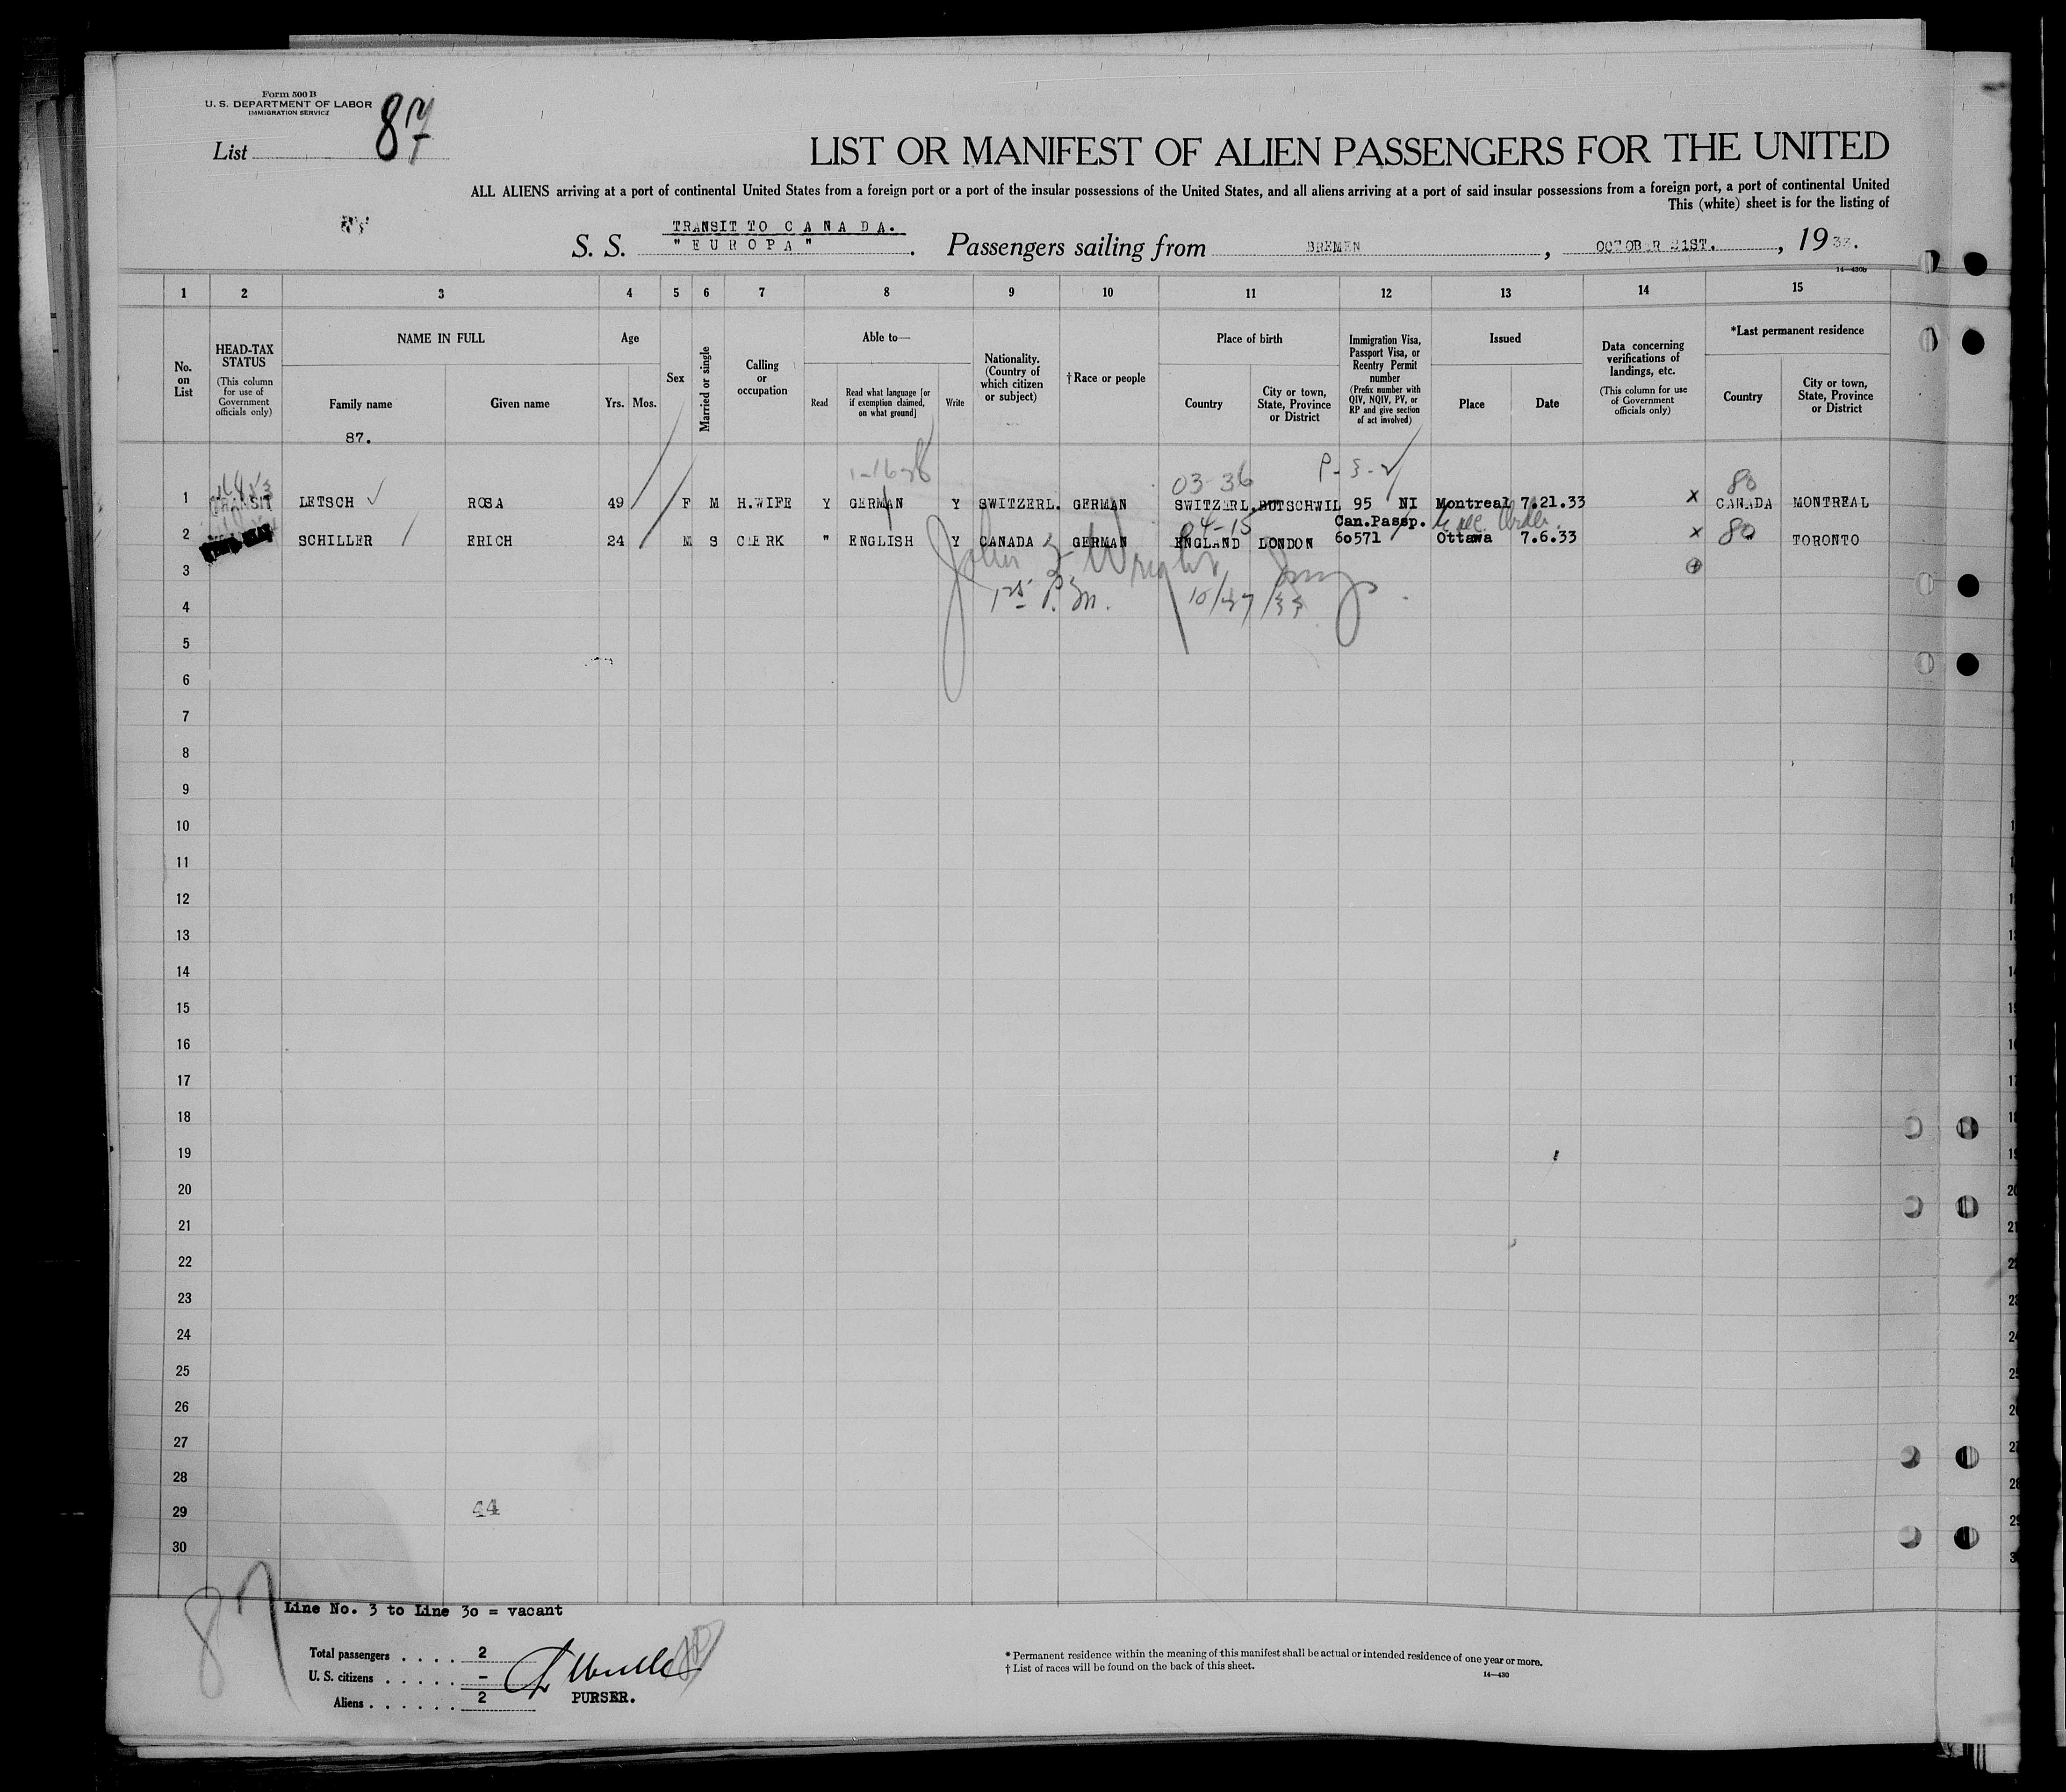 Form 500 B
U. S. DEPARTMENT OF LABOR
IMMIGRATION SERVICE
List 87
LIST OR MANIFEST OF ALIEN PASSENGERS FOR THE UNITED
ALL ALIENS arriving at a port of continental United States from a foreign port or a port of the insular possessions of the United States, and all aliens arriving at a port of said insular possessions from a foreign port, a port of continental United
This (white) sheet is for the listing of
TRANSIT TO CANADA.
S. S. "EUROPA". Passengers sailing from BREMEN, OCTOBER 21ST., 1933.
14—430b
1 2 3 4 5 6 7 8 9 10 11 12 13 14 15
No. on List
HEAD-TAX STATUS (This column for use of Government officials only)
NAME IN FULL
Family name
Given name
Age
Yrs. Mos.
Sex
Married or single
Calling or occupation
Able to—
Read
Read what language [or if exemption claimed, on what ground]
Write
Nationality. (Country of which citizen or subject)
† Race or people
Place of birth
Country
City or town, State, Province or District
Immigration Visa, Passport Visa, or Reentry Permit number (Prefix number with QIV, NQIV, PV, or RP and give section of act involved)
Issued
Place
Date
Data concerning verifications of landings, etc. (This column for use of Government officials only)
*Last permanent residence
Country
City or town, State, Province or District
87.
03-36 P-3-2 80
1 TRANSIT LETSCH ROSA 49 F M H.WIFE Y GERMAN Y SWITZERL. GERMAN SWITZERL. BUTSCHWIL 95 NI Montreal 7.21.33 x CANADA MONTREAL
04-15 Can.Passp.
2 SCHILLER ERICH 24 M S CLERK " ENGLISH Y CANADA GERMAN ENGLAND LONDON 60571 Ottawa 7.6.33 x 80 TORONTO
3
John Wright
4
10/27/33
5
6
7
8
9
10
11
12
13
14
15
16
17
18
19
20
21
22
23
24
25
26
27
28
29 44
30
87
Line No. 3 to Line 30 = vacant
Total passengers . . . . 2
U. S. citizens . . . . . –
Aliens . . . . . . 2
PURSER.
* Permanent residence within the meaning of this manifest shall be actual or intended residence of one year or more.
† List of races will be found on the back of this sheet.
14—430